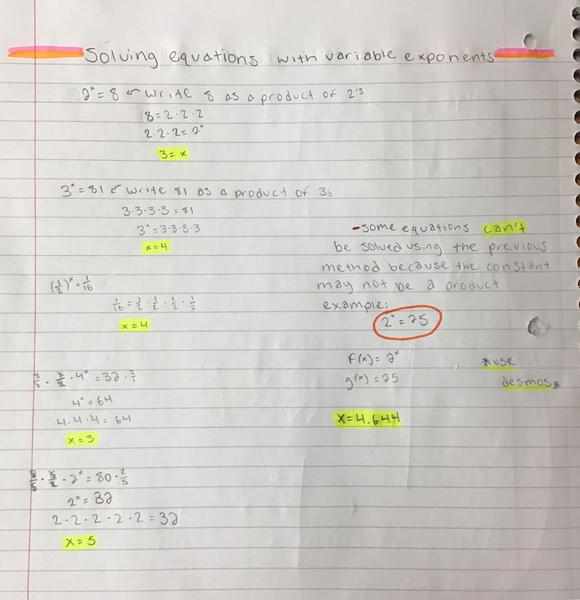 Solving equations with variable exponents
2ˣ = 8 ← Write 8 as a product of 2's
8 = 2 · 2 · 2
2 · 2 · 2 = 2ˣ
3 = x
3ˣ = 81 ← write 81 as a product of 3s
3·3·3·3 = 81
3ˣ = 3·3·3·3
x = 4
(1/2)ˣ = 1/16
1/16 = 1/2 · 1/2 · 1/2 · 1/2
x = 4
· 4ˣ = 32 ·
4ˣ = 64
4 · 4 · 4 = 64
x = 3
· 2ˣ = 80 · 2/5
2ˣ = 32
2 · 2 · 2 · 2 · 2 = 32
x = 5
- some equations can't
be solved using the previous
method because the constant
may not be a product
example:
2ˣ = 25
f(x) = 2ˣ
g(x) = 25
x = 4.644
*use
desmos*